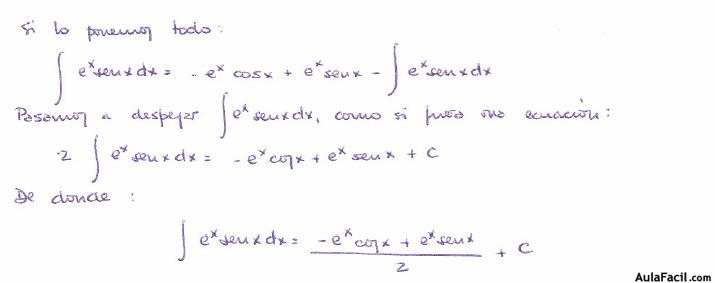 Si lo ponemos todo:
∫ eˣ sen x dx = - eˣ cos x + eˣ sen x - ∫ eˣ sen x dx
Pasamos a despejar ∫ eˣ sen x dx, como si fuera una ecuación:
2 ∫ eˣ sen x dx = - eˣ cos x + eˣ sen x + C
De donde :
∫ eˣ sen x dx = (- eˣ cos x + eˣ sen x) / 2 + C
AulaFacil.com